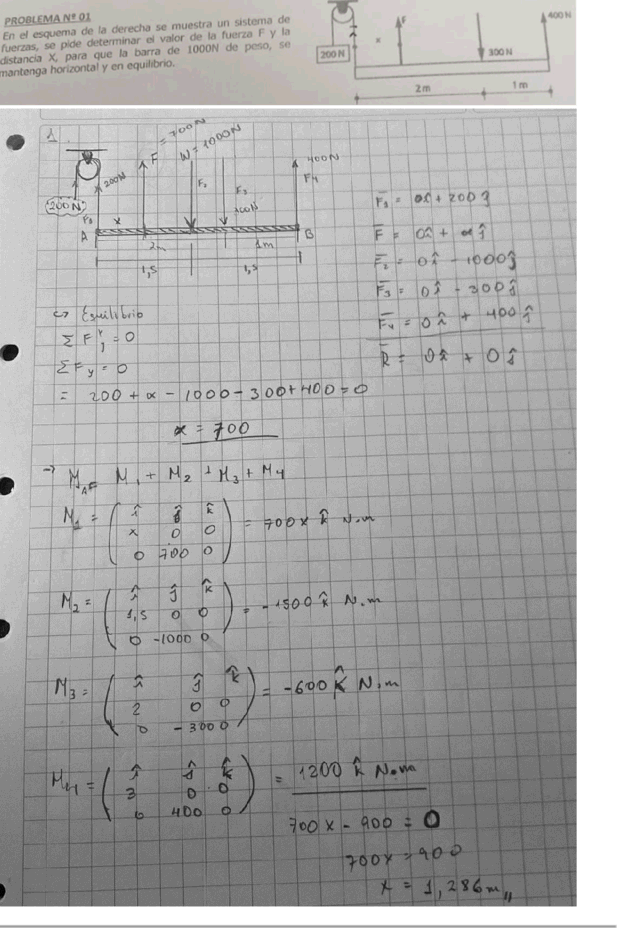 PROBLEMA Nº 01
En el esquema de la derecha se muestra un sistema de
fuerzas, se pide determinar el valor de la fuerza F y la
distancia X, para que la barra de 1000N de peso, se
mantenga horizontal y en equilibrio.
200 N
x
F
300 N
400 N
2m
1m
1
F = 700N
W = 1000N
200N
200N
400N
F4
F2
F3
x
A
B
2m
1m
1,5
1,5
F̅ = 0î + αĵ
F̅2 = 0î - 1000ĵ
F̅3 = 0î - 300ĵ
F̅4 = 0î + 400ĵ
R̅ = 0î + 0ĵ
=> Equilibrio
ΣFy = 0
= 200 + α - 1000 - 300 + 400 = 0
α = 700
M1 + M2 + M3 + M4
M1 = ( î ĵ k̂
x 0 0
0 700 0 ) = 700x k̂ N.m
M2 = ( î ĵ k̂
1,5 0 0
0 -1000 0 ) = -1500 k̂ N.m
M3 = ( î ĵ k̂
2 0 0
0 -300 0 ) = -600 k̂ N.m
M4 = ( î ĵ k̂
3 0 0
0 400 0 ) = 1200 k̂ N.m
700x - 900 = 0
700x = 900
x = 1,286m,,